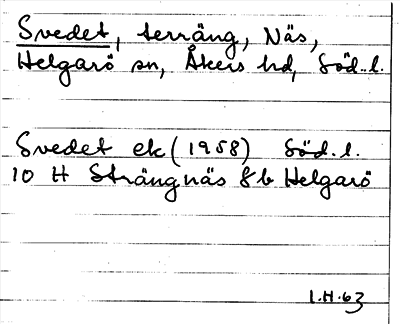 Svedet, terräng, Näs,
Helgarö sn, Åkers hd, Söd. l.
Svedet ek (1958) Söd. l.
10 H Strängnäs 8 b Helgarö
I.H. 63